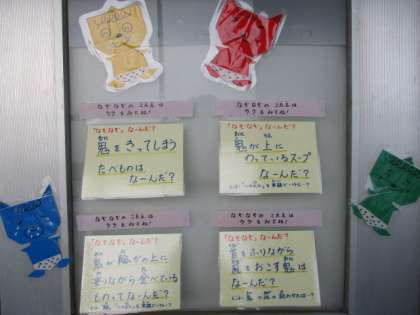 なぞなぞの こたえは
ウラをみてね!
「なぞなぞ」なーんだ?
鬼をきってしまう
たべものは
なーんだ?
なぞなぞの こたえは
ウラをみてね!
「なぞなぞ」なーんだ?
鬼が上に
のっているスープ
なーんだ?
なぞなぞの こたえは
ウラをみてね!
「なぞなぞ」なーんだ?
鬼が輪がの上に
乗りながら食べている
ものってなーんだ?
なぞなぞの こたえは
ウラをみてね!
「なぞなぞ」なーんだ?
首をふりながら
風をおこす鬼は
なーんだ?